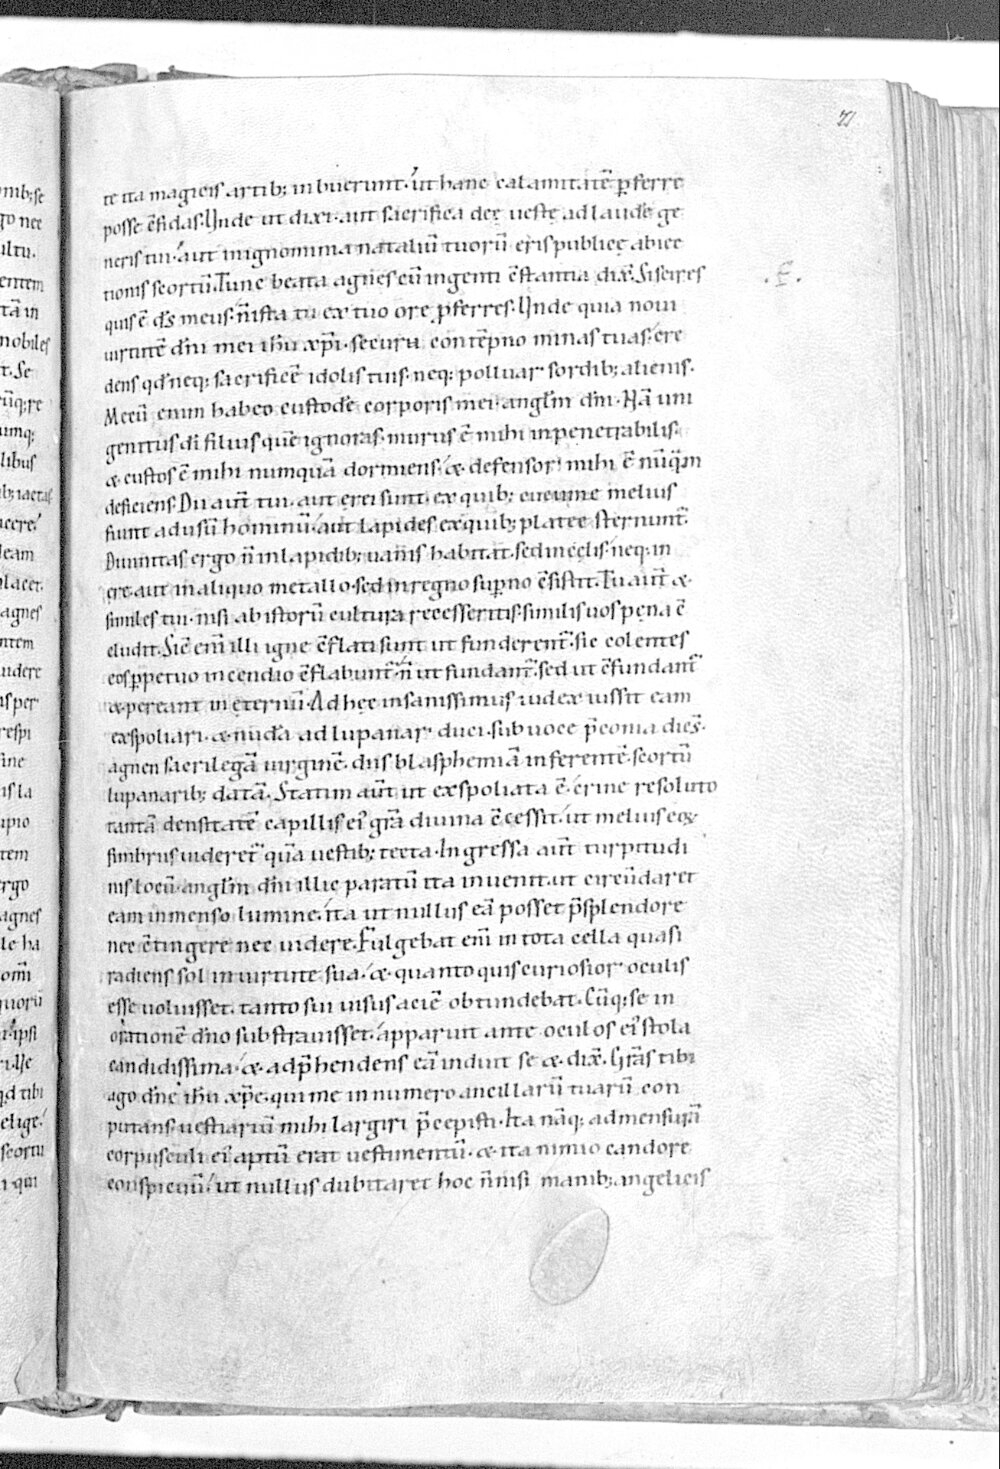 71
te ita magicis artib; inbuerunt. ut hanc calamitatē ꝑferre
posse c̄fidas. Unde ut dixi. aut sacrifica deę uestę ad laudē ge
neris tui. aut in ignominia nataliū tuorū eris publicę abiec
tionis scortū. Tunc beata agnes cū ingenti c̄stantia dix̄. Si scires
quis ē d̄s meus. n̄ ista tu ex tuo ore ꝓferres. Unde quia noui
uirtutē dn̄i mei ih̄u xp̄i. secura contēpno minas tuas. cre
dens qd̄ neq; sacrificē idolis tuis. neq; polluar sordib; alienis.
Mecū enim habeo custodē corporis mei. angl̄m dn̄i. Nā uni
genitus di filius quē ignoras. murus ē mihi inpenetrabilis.
& custos ē mihi numquā dormiens. & defensor mihi ē nūq̄m
deficiens. Dii aut̄ tui. aut erei sunt. ex quib; cucume melius
fiunt ad usū hominū. aut lapides ex quib; plateę sternunt̄.
Diuinitas ergo n̄ in lapidib; uanis habitat. sed in cęlis. neq; in
ęre aut in aliquo metallo. sed in regno suꝑno c̄sistit. Tu aut̄ &
similes tui. nisi ab istorū cultura recesseritis. similis uos pena c̄
cludit. Sic em̄ illi igne c̄flati sunt ut funderent̄. sic colentes
eos ꝑpetuo incendio c̄flabunt̄. n̄ ut fundant̄. sed ut c̄fundant̄
& pereant in ęternū. Ad hęc insanissimus iudex iussit eam
exspoliari. & nudā ad lupanar duci. sub uoce p̄conia dices.
agnen sacrilegā uirginē. diis blasphemiā inferentē. scortū
lupanarib; datā. Statim aut̄ ut exspoliata ē. crine resoluto
tantā densitatē capillis ei gr̄a diuina c̄cessit. ut melius eoꝝ
fimbriis uideret̄ quā uestib; tecta. Ingressa aut̄ turpitudi
nis locū. angl̄m dn̄i illic paratū ita inuenit. ut circūdaret
eam inmenso lumine. ita ut nullus eā posset p̄ splendore
nec c̄tingere nec uidere. Fulgebat em̄ in tota cella quasi
radiens sol in uirtute sua. & quanto quis curiosior oculis
esse uoluisset. tanto sui uisus aciē obtundebat. Cūq; se in
orationē dn̄o substrauisset. apparuit ante oculos ei stola
candidissima. & adp̄hendens eā induit se & dix̄. Gr̄as tibi
ago dn̄e ih̄u xp̄e. qui me in numero ancillarū tuarū con
putans uestiariū mihi largiri p̄cepisti. Ita nāq; ad mensurā
corpusculi ei aptū erat uestimentū. & ita nimio candore
conspicuū. ut nullus dubitaret hoc n̄nisi manib; angelicis